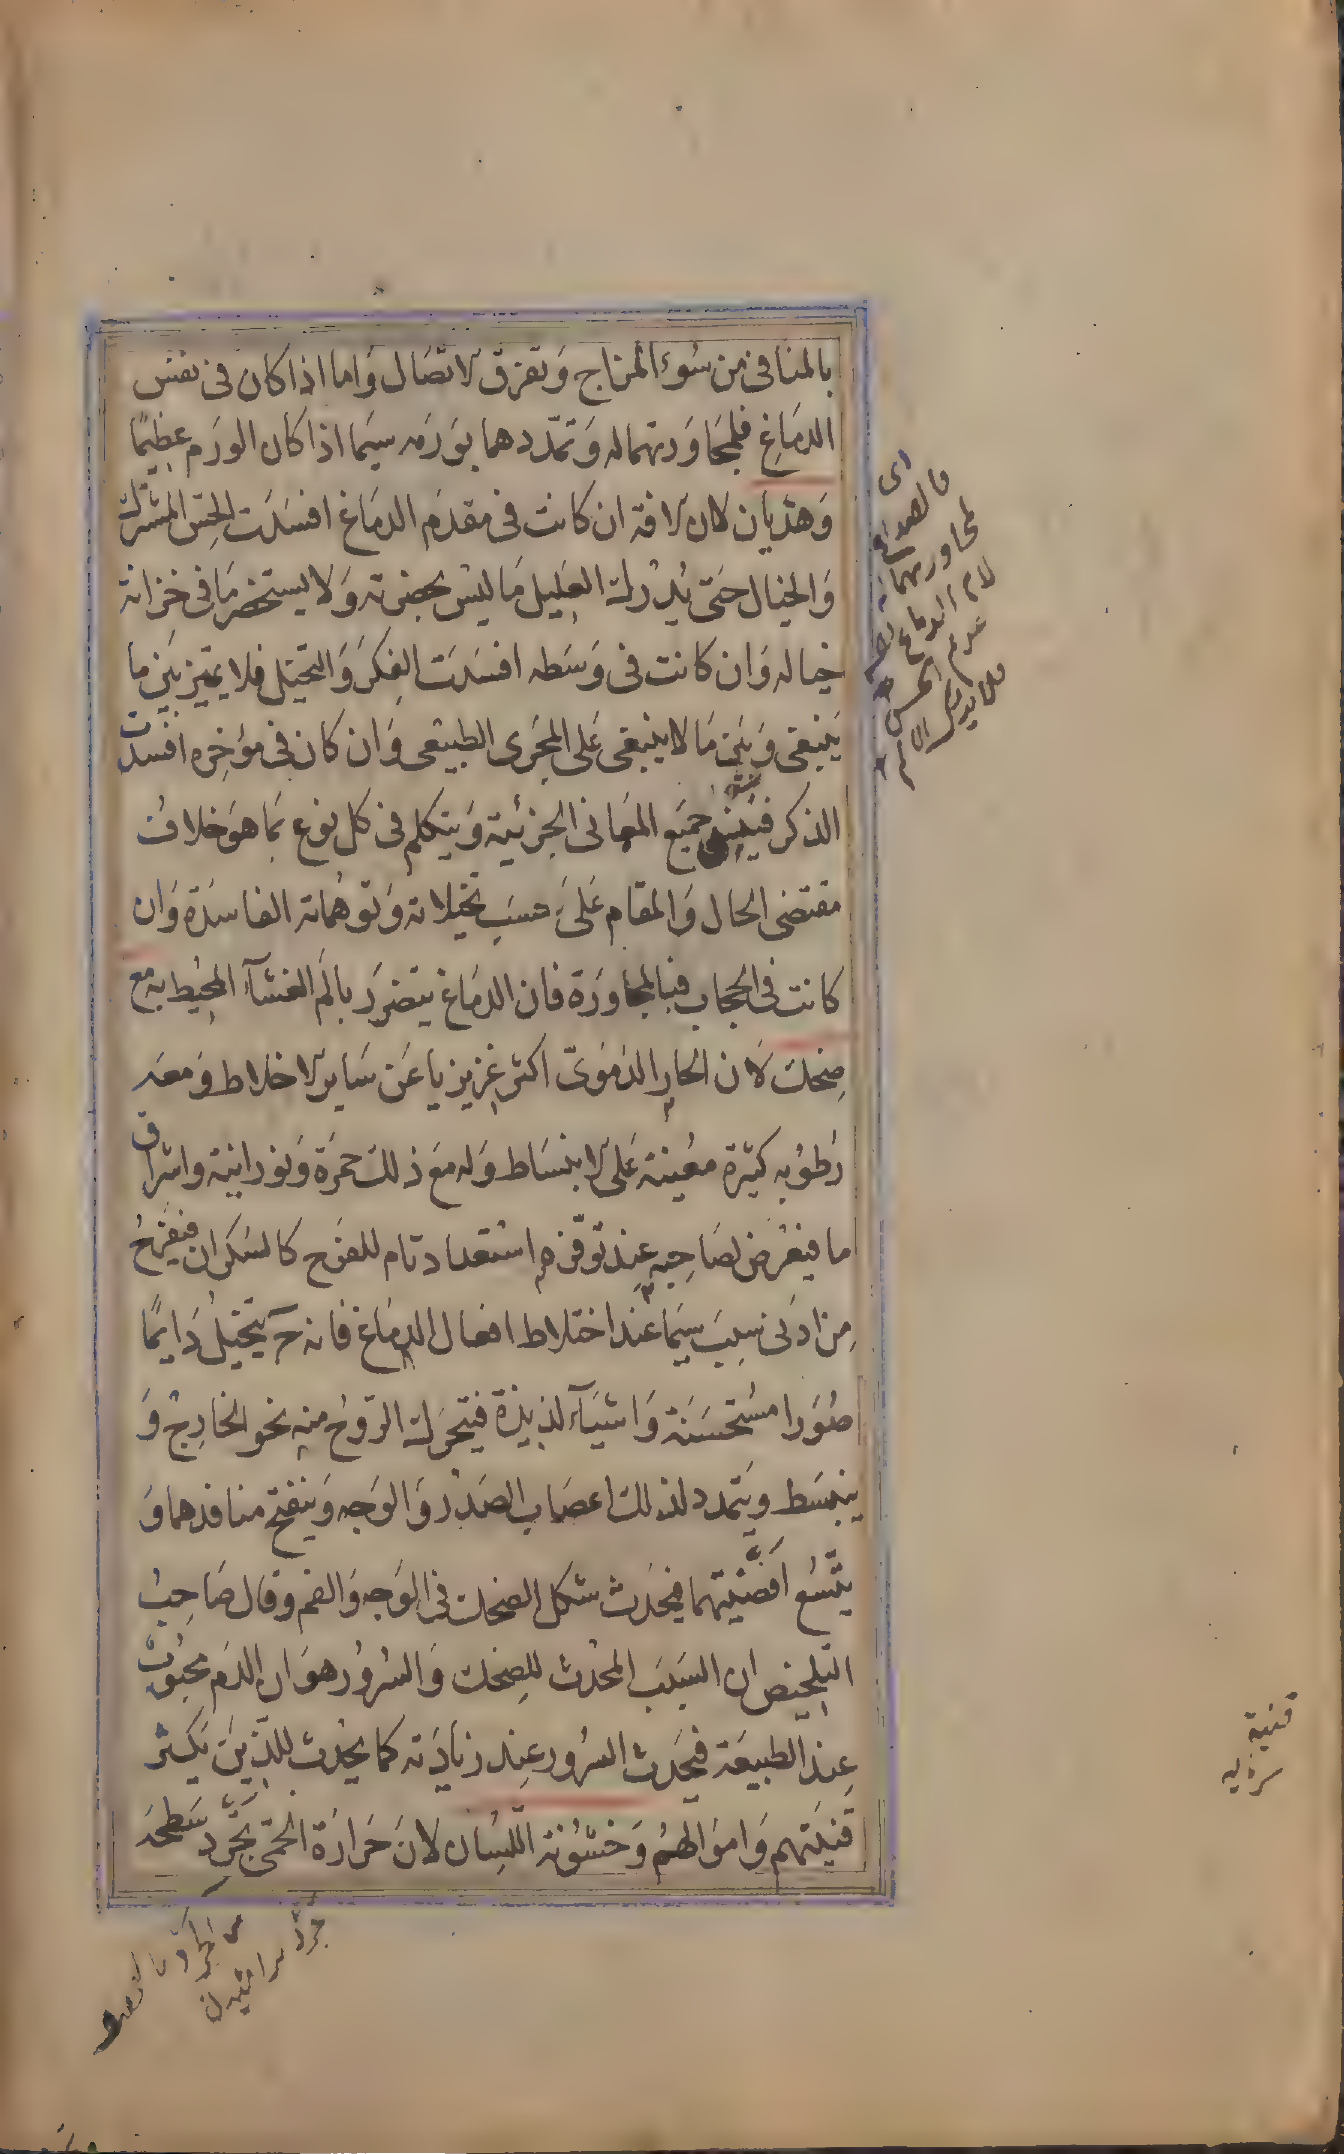 بالمنافى من سُوء المزاج وَتفرق الاتّصَال وَاما اذا كان فى نفس
الدمَاغِ فلمجَاوَرتهما له وَتمّددهما بوَرَمه سيَما اذا كان الورَم عظِيمًا
وَهذيان لان الافة ان كانت فى مقدَم الدمَاغ افسَدَت الحِسّ المشترك
وَالخيال حَتى يُدْرك العَلِيل مَا ليْس بحضرته وَلا يستحضر مَا فى خزانة
خياله وَان كانت فى وَسَطه افسَدَت الفِكرَ وَالتخيّل فلا يميّز بَيَن ما
يَنبغى وَبَيَن مَا لا ينبغى عَلى المجَرى الطبيعى وَان كان فى مؤخِره افسَدت
الذكر فيَنسى جميَع المعَانى الجزئية وَيتكلم فى كل نوع بمَا هوَ خلاف
مقتضى الحال وَالمقام عَلىَ حسَبِ تخيلاته وَتوهُماته الفاسدَة وَان
كانت فى الحجاب فبالمجاوَرَة فان الدمَاغ يتضرَر بالَم الغشآء المحِيط به مع
ضِحك لان الحارا الدمَوىّ اكثر غزيزيا عَن سَاير الاخلاط وَمعَه
رُطوُبه كثيَرة معُينة عَلى الانبسَاط وَله مَع ذلك حمرَة وَنورانية واشراق
ما فيعْرض لصَاحِبه عِند توَفّره استعداد تام للفرَح كالسُكران فيفَرحُ
مِن ادنَى سبَب سيَما عنَد اختلاط افعال الدمَاغ فانه ح يتخيّل دَايمًا
صُوَرا مسُتحسَنة وَاشيَآء لذيذة فيَتحرَك الروّح منه نحو الخارج وَ
ينبَسط ويَتمدد لذلك اعصَاب الصَدْر وَالوَجه وَينفتح منافذهما وَ
يتّسُع اَفضّيَتهما فيحَدث شكل الضحك فى الوَجه وَالفم وقال صَاحِبُ
التلِخيص ان السَبَب المحُدث للِضحك وَالسُرور هوَ ان الدَم محبُوبٌ
عِندَ الطبيعَة فيَحدث السرُور عِند زيادَته كما يحُدث للَذِين يَكثر
قنيَتهم وَاموَالهُم وَخشُونة اللّسُان لانَ حَرارَة الحمّى تجَرّد سَطحَه
اى
فالصداع
لمجاورتهما
لام الدماغ
عدم الحس
فلا يدرك الالم
قنية
سرمايه